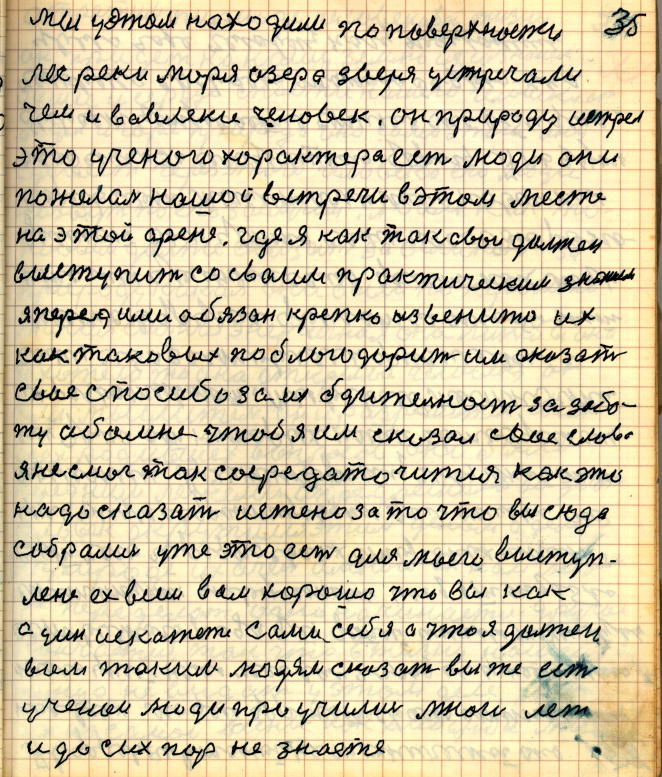 мы уэтом находили по поверхности 35
лес реки моря озера зверя устречали
чем и вавлеки человек. он природу истрел
это ученого характера ест люди они
пожелам нашой встречи вэтом месте
на этой арене. где я как таковыи должен
выступит со сваим практическим знанием
яперед ими абязан крепко извенита их
как таковых поблогодорит им сказат
свое способо за их бдителност за забо-
ту абомне чтоб я им сказал свое слово
янесмог так соередаточития как это
надо сказат истено за то что вы сюда
собралис уже это ест для моего выступ-
лене ехвеш вам хорошо что вы как
один искатети сами себя а что я должен
вам таким людям сказат вы же ест
ученои люди проучилис много лет
и до сих пор не знаете